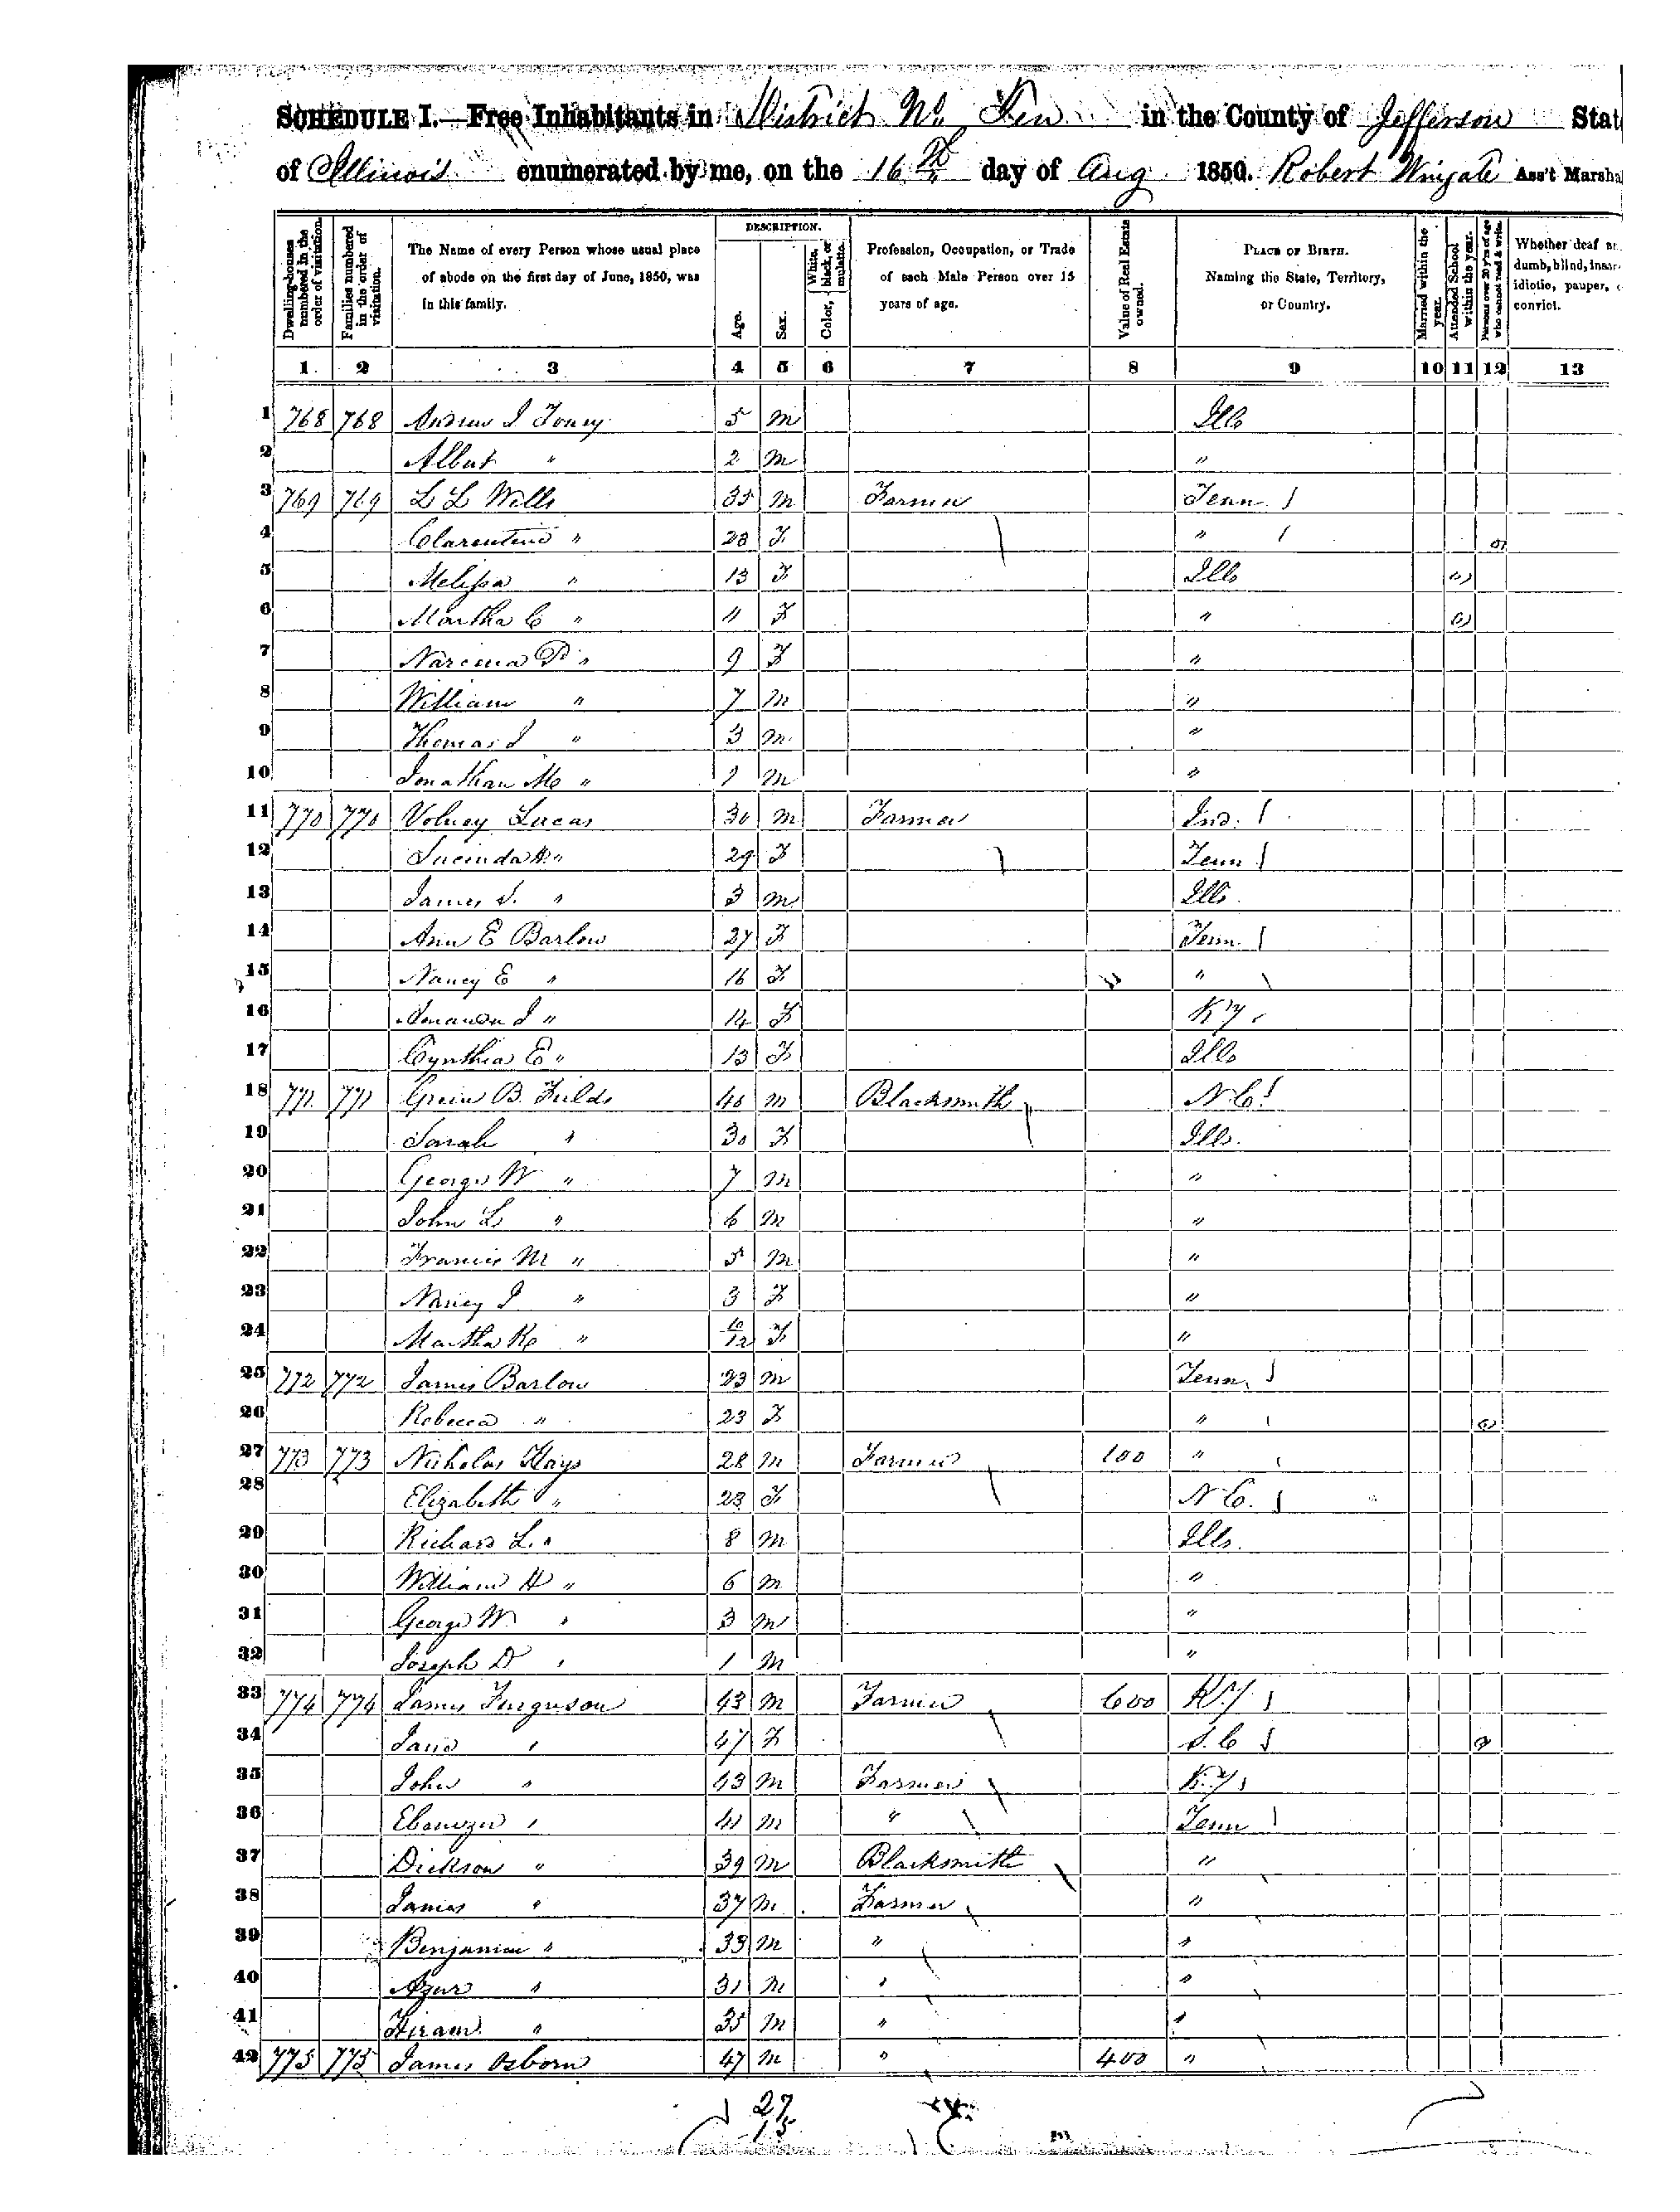 SCHEDULE I.—Free Inhabitants in District No. Ten in the County of Jefferson Stat
of Illinois enumerated by me, on the 16th day of Aug 1850. Robert Wingate Ass't Marsha
DESCRIPTION.
Dwelling-houses numbered in the order of visitation.
Families numbered in the order of visitation.
The Name of every Person whose usual place of abode on the first day of June, 1850, was in this family.
Age.
Sex.
Color, White, black, or mulatto.
Profession, Occupation, or Trade of each Male Person over 15 years of age.
Value of Real Estate owned.
PLACE OF BIRTH. Naming the State, Territory, or Country.
Married within the year.
Attended School within the year.
Persons over 20 y'rs of age who cannot read & write.
Whether deaf an dumb, blind, insan idiotic, pauper, convict.
1 2 3 4 5 6 7 8 9 10 11 12 13
1 768 768 Andrew J Toney 5 M Ills
2 Albert " 2 M "
3 769 769 L L Wells 35 M Farmer Tenn
4 " 28 F "
5 Melissa " 13 F Ills
6 Martha C " 11 F "
7 P " 9 F "
8 William " 7 M "
9 Thomas J " 3 M "
10 Jonathan Mc " 1 M "
11 770 770 Volney Lucas 30 M Farmer Ind.
12 Lucinda H " 29 F Tenn
13 James S. " 3 M Ills.
14 Ann E Barlow 27 F Tenn.
15 Nancy E " 16 F "
16 Amanda J " 14 F Ky
17 Cynthia E " 13 F Ills
18 771 771 Green B. Fields 40 M Blacksmith N C
19 Sarah " 30 F Ills.
20 George W " 7 M "
21 John L " 6 M "
22 Francis M " 5 M "
23 Nancy J " 3 F "
24 Martha " 10/12 F "
25 772 772 James Barlow 23 M Tenn.
26 Rebecca " 23 F "
27 773 773 Nicholas Hays 28 M Farmer 100 "
28 Elizabeth " 23 F N C.
29 Richard L. " 8 M Ills.
30 William H " 6 M "
31 George W " 3 M "
32 Joseph D " 1 M "
33 774 774 James Ferguson 43 M Farmer 600 K.Y
34 Jane " 47 F S. C
35 John " 43 M Farmer K.Y
36 Ebenezer " 41 M " Tenn
37 Dickson " 39 M Blacksmith "
38 James " 37 M Farmer "
39 Benjamin " 33 M " "
40 Azur " 31 M " "
41 Hiram " 35 M " "
42 775 775 James Osborn 47 M " 400 "
27
15